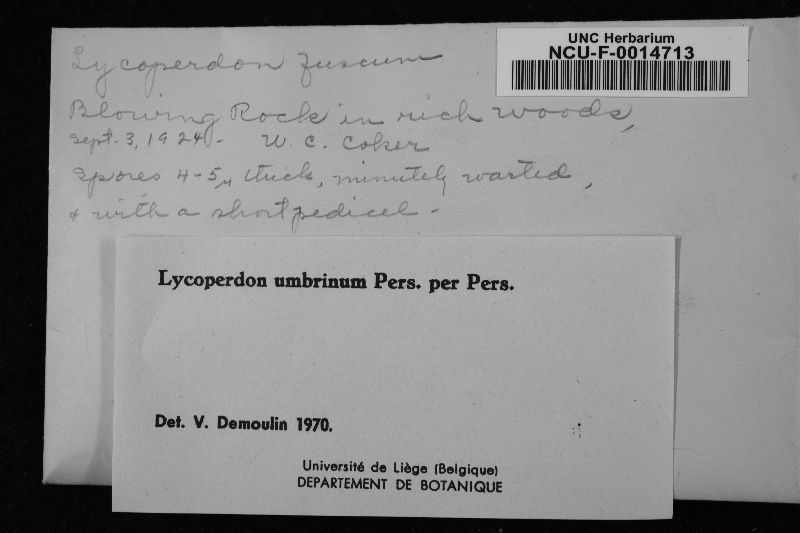 UNC Herbarium
NCU-F-0014713
Lycoperdon fuscum
Blowing Rock in rich woods,
Sept. 3, 1924. W. C. Coker
Spores 4-5µ thick, minutely warted,
& with a short pedicel.
Lycoperdon umbrinum Pers. per Pers.
Det. V. Demoulin 1970.
Université de Liège (Belgique)
DEPARTEMENT DE BOTANIQUE